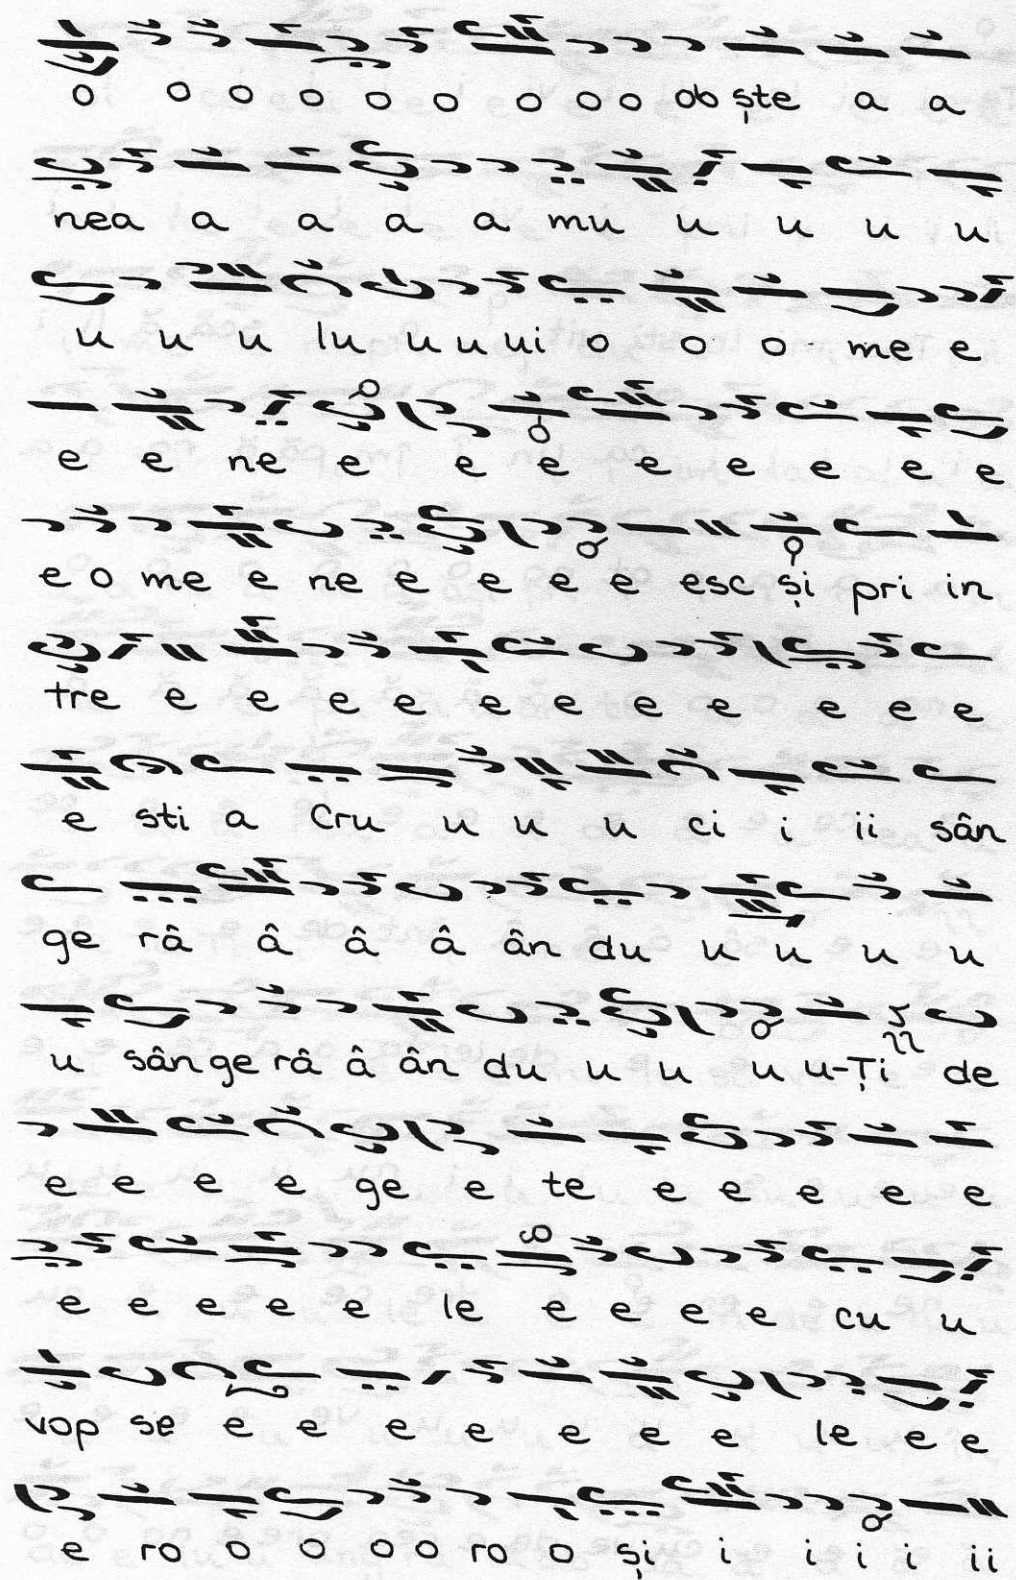 o o o o o o o o o ob ște a a
nea a a a a mu u u u u
u u u lu u u ui o o o me e
e e ne e e e e e e e e
e o me e ne e e e e esc și pri in
tre e e e e e e e e e e e
e sti a Cru u u u ci i ii sân
ge râ â â â ân du u u u u
u sân ge râ â ân du u u u u-Ți de
e e e e ge e te e e e e e
e e e e e le e e e e cu u
vop se e e e e e e e le e e
e ro o o o o ro o și i i i i ii